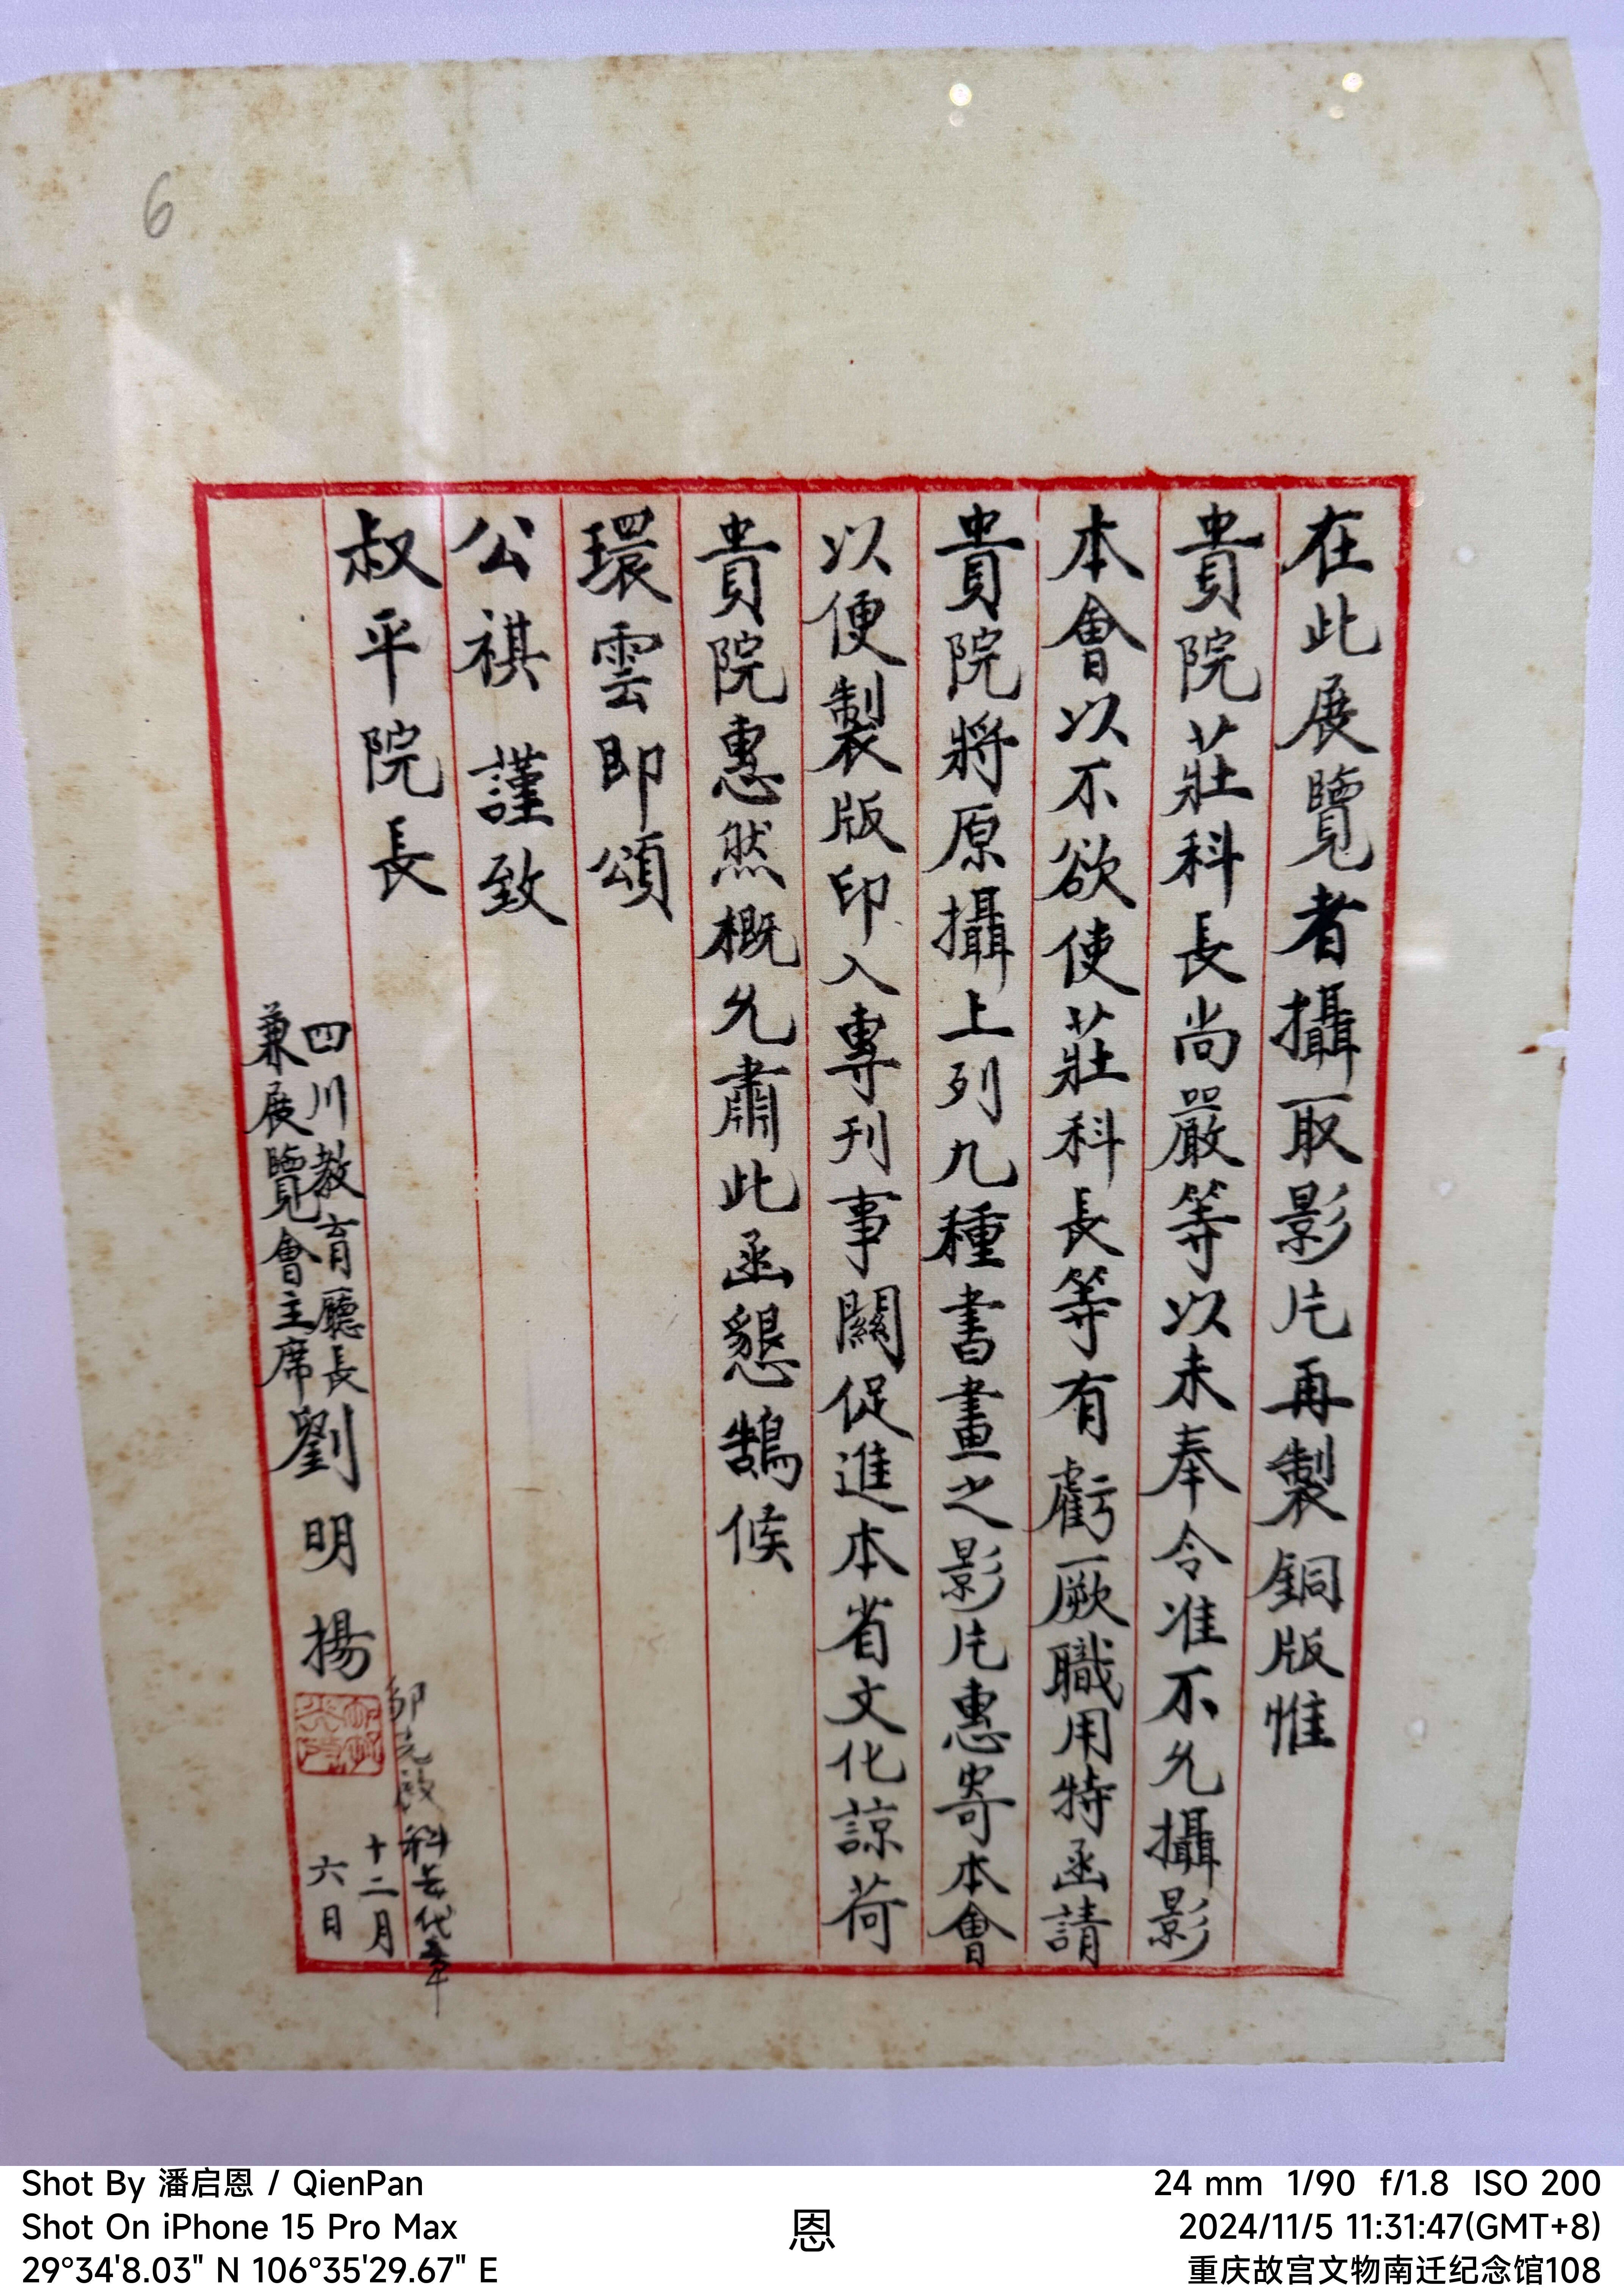 6
在此展覽者攝取影片再製銅版惟
貴院莊科長尚嚴等以未奉令准不允攝影
本會以不欲使莊科長等有虧厥職用特函請
貴院將原攝上列九種書畫之影片惠寄本會
以便製版印入專刊事關促進本省文化諒荷
貴院惠然概允肅此函懇鵠候
環雲即頌
公祺 謹致
叔平院長
四川教育廳長
兼展覽會主席
劉明揚
科長代拿
十二月
六日
Shot By 潘启恩 / QienPan
Shot On iPhone 15 Pro Max
29°34'8.03" N 106°35'29.67" E
恩
24 mm 1/90 f/1.8 ISO 200
2024/11/5 11:31:47(GMT+8)
重庆故宫文物南迁纪念馆108